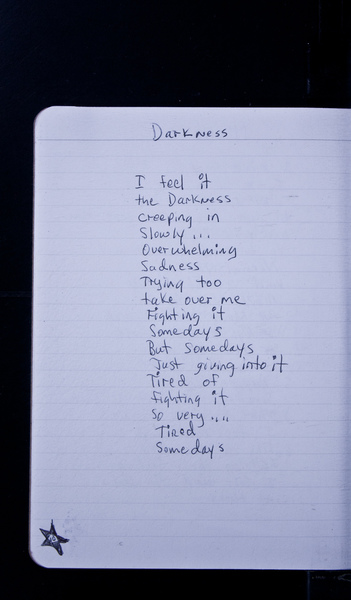 Darkness
I feel it
the Darkness
creeping in
Slowly...
Overwhelming
Sadness
Trying too
take over me
Fighting it
Somedays
But somedays
Just giving into it
Tired of
fighting it
So very....
Tired
Somedays